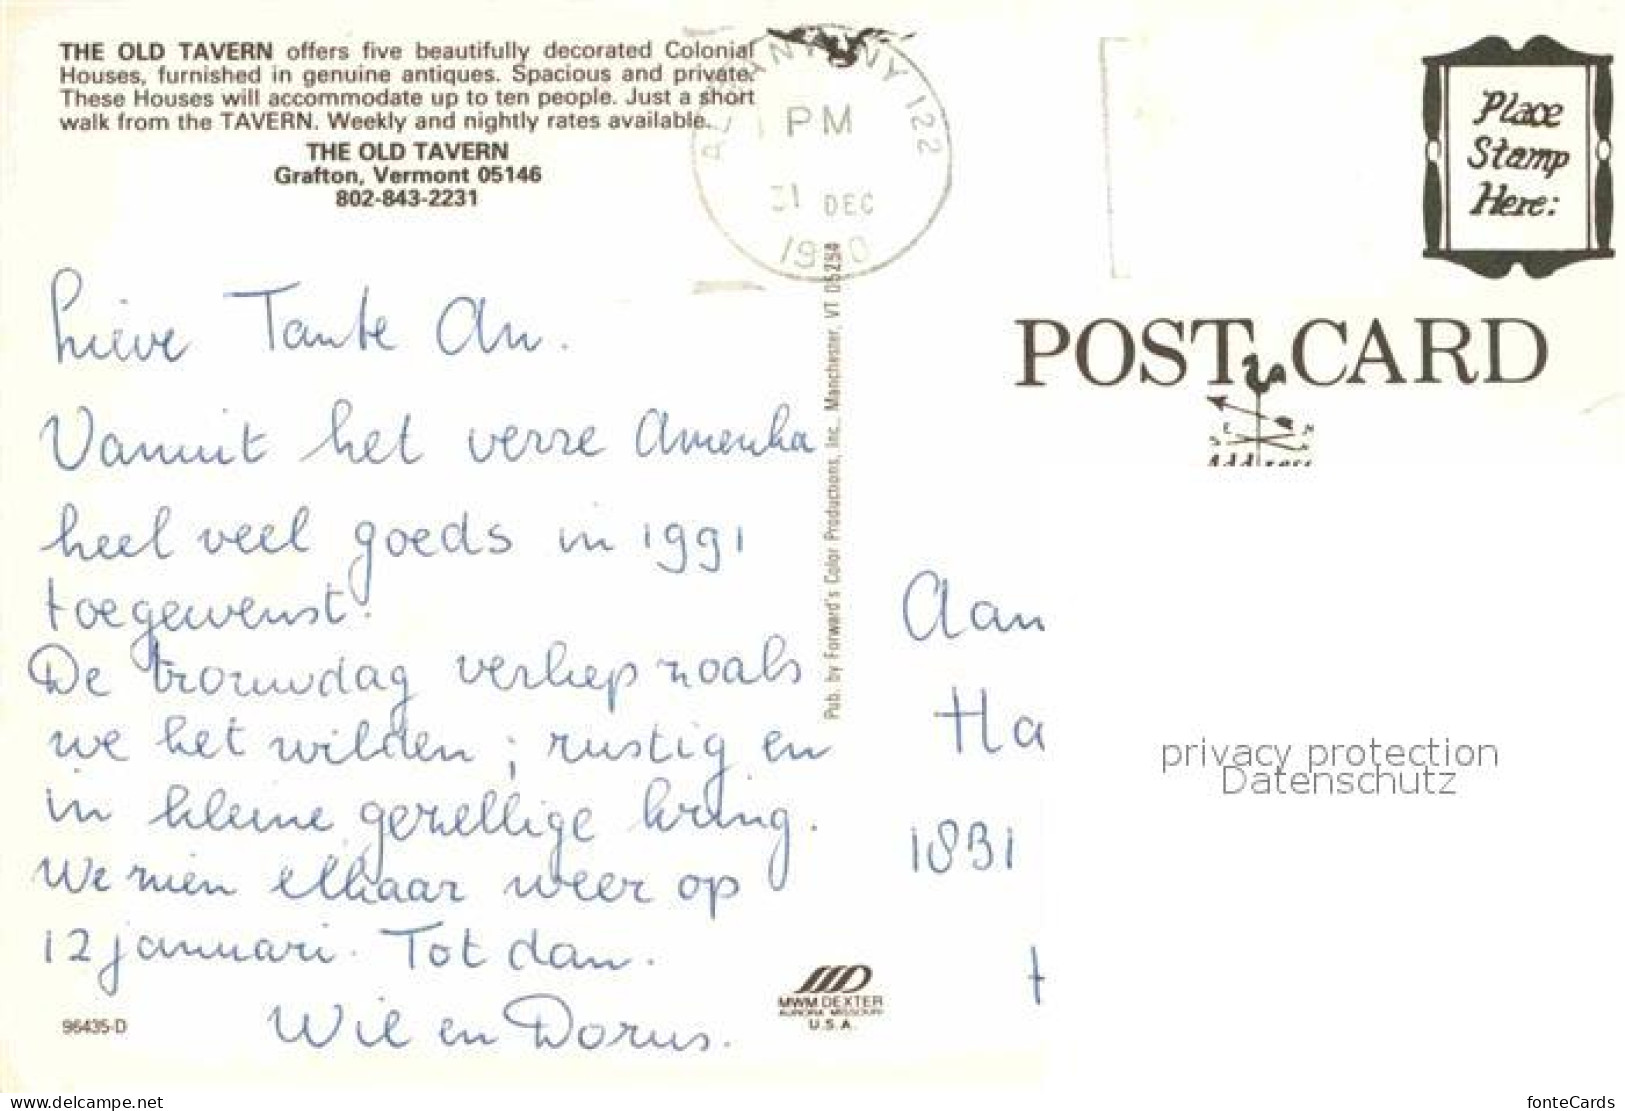 THE OLD TAVERN offers five beautifully decorated Colonial
Houses, furnished in genuine antiques. Spacious and private.
These Houses will accommodate up to ten people. Just a short
walk from the TAVERN. Weekly and nightly rates available.
THE OLD TAVERN
Grafton, Vermont 05146
802-843-2231
NY 122
PM
31 DEC
Place
Stamp
Here:
POST CARD
Address
Lieve Tante An.
Vanuit het verre Amerika
heel veel goeds in 1991
toegewenst.
De trouwdag verliep zoals
we het wilden; rustig en
in kleine gezellige kring.
We zien elkaar weer op
12 januari. Tot dan.
Wil en Dorus.
Pub. by Forward's Color Productions, Inc., Manchester, VT 05254
Aan
Ha
1831
privacy protection
Datenschutz
MWM DEXTER
AURORA MISSOURI
U.S.A.
96435-D
www.delcampe.net
fonteCards